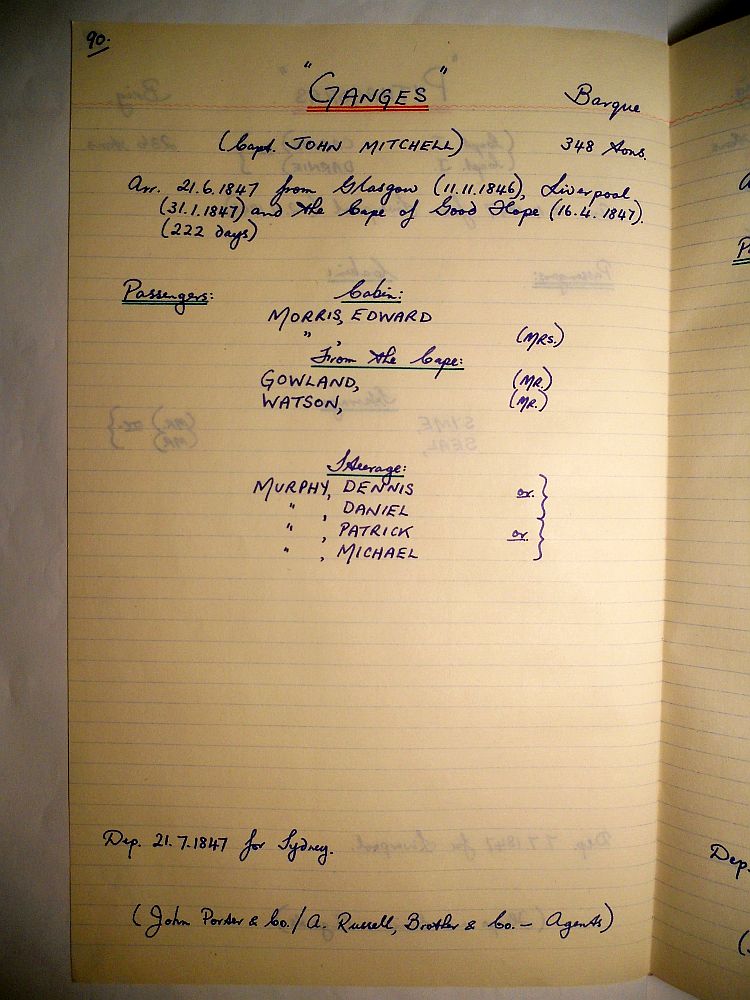 90.
"GANGES" Barque
(Capt. JOHN MITCHELL) 348 tons.
Arr. 21.6.1847 from Glasgow (11.11.1846), Liverpool
(31.1.1847) and the Cape of Good Hope (16.4.1847).
(222 days)
Passengers: Cabin:
MORRIS, EDWARD
" , (MRS.)
From the Cape:
GOWLAND, (MR.)
WATSON, (MR.)
Steerage:
MURPHY, DENNIS or. }
" , DANIEL
" , PATRICK or. }
" , MICHAEL
Dep. 21.7.1847 for Sydney.
(John Porter & Co. / A. Russell, Brother & Co. – Agents)
Dep.